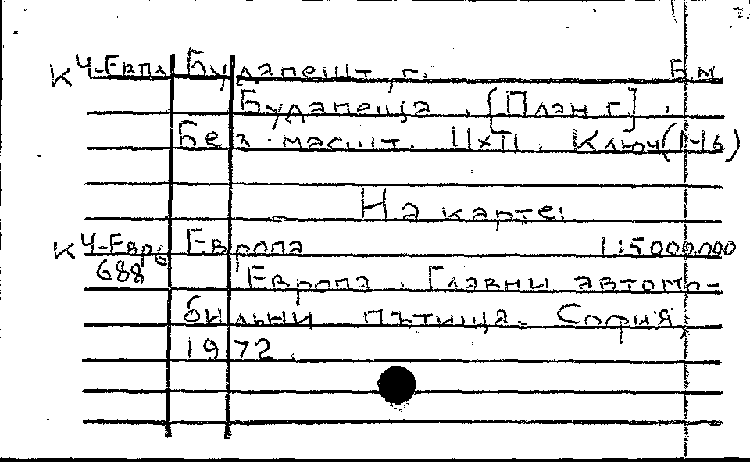 К Ч-Евпл Будапещ, г. Б.м
Будапеща . [План г.] .
Без масшт. ЦхП . Ключ(1-16)
На карте:
К Ч-Евр. Европа 1:5000.000
688 Европа . Главни автомо-
билни пътища. София,
1972 .